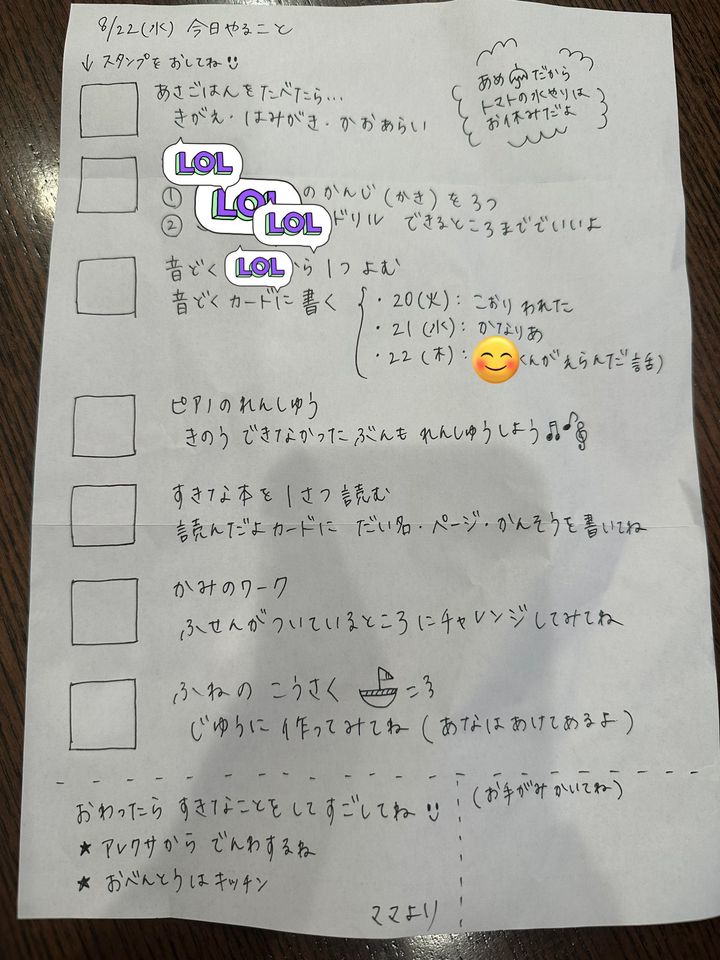 8/22(水) 今日やること
↓スタンプをおしてね
あめだから
トマトの水やりは
お休みだよ
あさごはんをたべたら…
きがえ・はみがき・かおあらい
LOL
① LOL のかんじ(かき)を3つ
② LOL ドリル できるところまででいいよ
音どく LOL から1つよむ
音どくカードに書く
・20(火):こおりわれた
・21(水):かなりあ
・22(木): くんがえらんだ話)
ピアノのれんしゅう
きのうできなかったぶんもれんしゅうしよう♫♪
すきな本を1さつ読む
読んだよカードに だい名・ページ・かんそうを書いてね
かみのワーク
ふせんがついているところにチャレンジしてみてね
ふねのこうさく
じゆうに作ってみてね(あなはあけてあるよ)
おわったらすきなことをしてすごしてね
★アレクサからでんわするね
★おべんとうはキッチン
ママより
(お手がみかいてね)